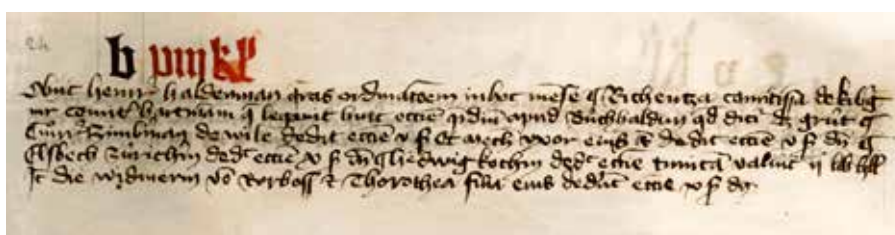 24
b viij kl
Obiit heinr haldenman gras ordinatoem in hoc mense q Richentza comitissa de kibg
mr comit hartman q legauit huic eccie pdiu apud Buchhaldun qd dicit dz grut q
Cunr Zimbman de wile dedit eccie v ß Et mech vxor eius dedit eccie v ß dn q
Elsbech zurichin dedt eccie v ß dn hedwig kochin dedt eccie tunica valent ij lib hll
It die widmerin vo Rorboss z Thorothea filia eius dedut eccie x ß dn